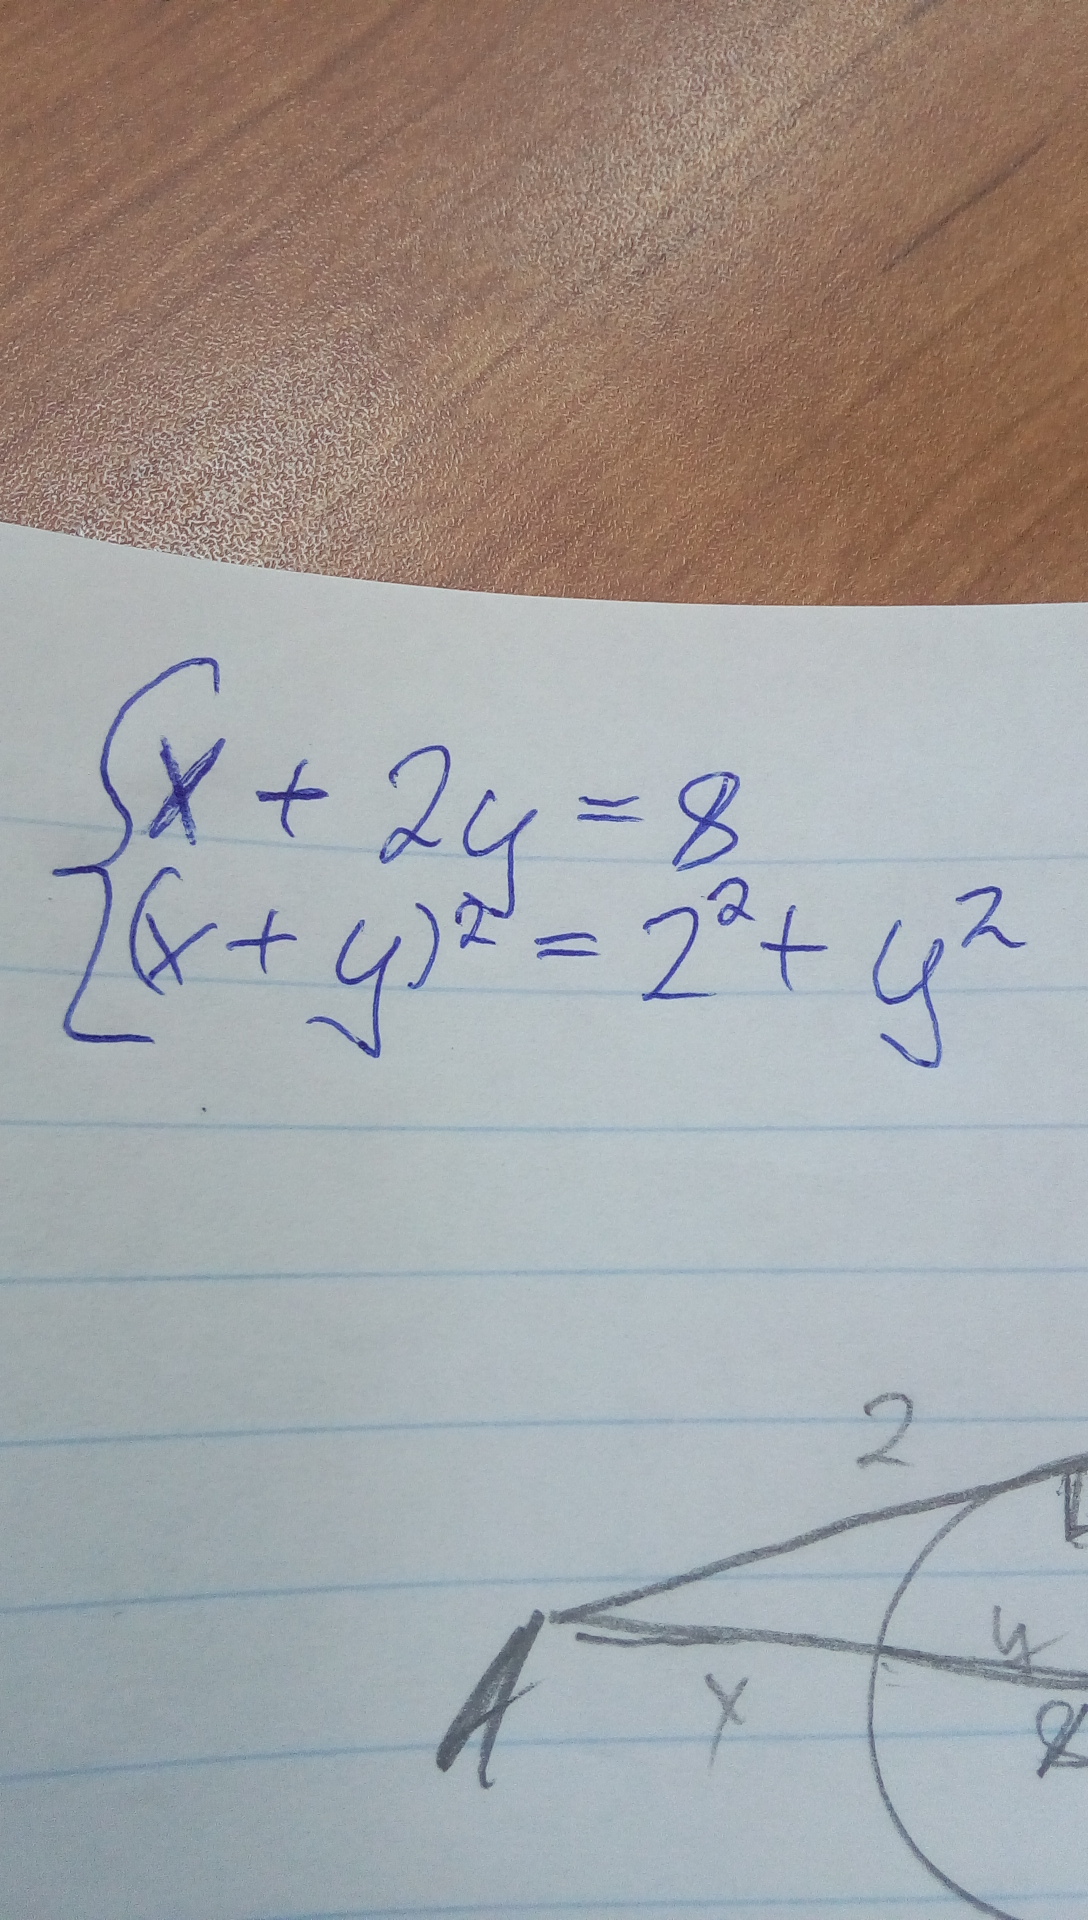 x + 2y = 8
(x + y)² = 2² + y²
2
y
A
x
8